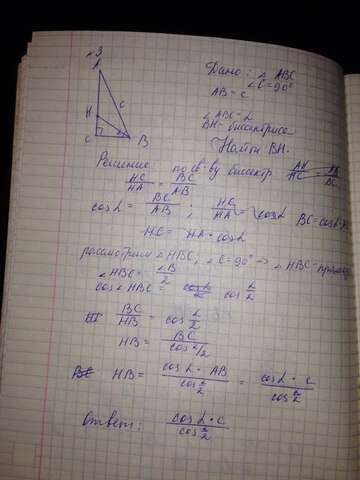 №3
A
H
c
C
B
Дано: △ ABC
∠C=90°
AB = c
∠ABC=α
BH-биссектриса
Найти BH.
Решение по св-ву биссектр AH/HC = AB/BC
HC/HA = BC/AB
cosα = BC/AB ; HC/HA = cosα
HC = HA · cosα
рассмотрим △HBC, ∠C=90° → △HBC-
∠HBC = ∠B/2
cos HBC = cos α/2
BC/HB = cos α/2
HB = BC/cos α/2
HB = cosα · AB/cos α/2 = cosα · c/cos α/2
Ответ: cosα · c/cos α/2